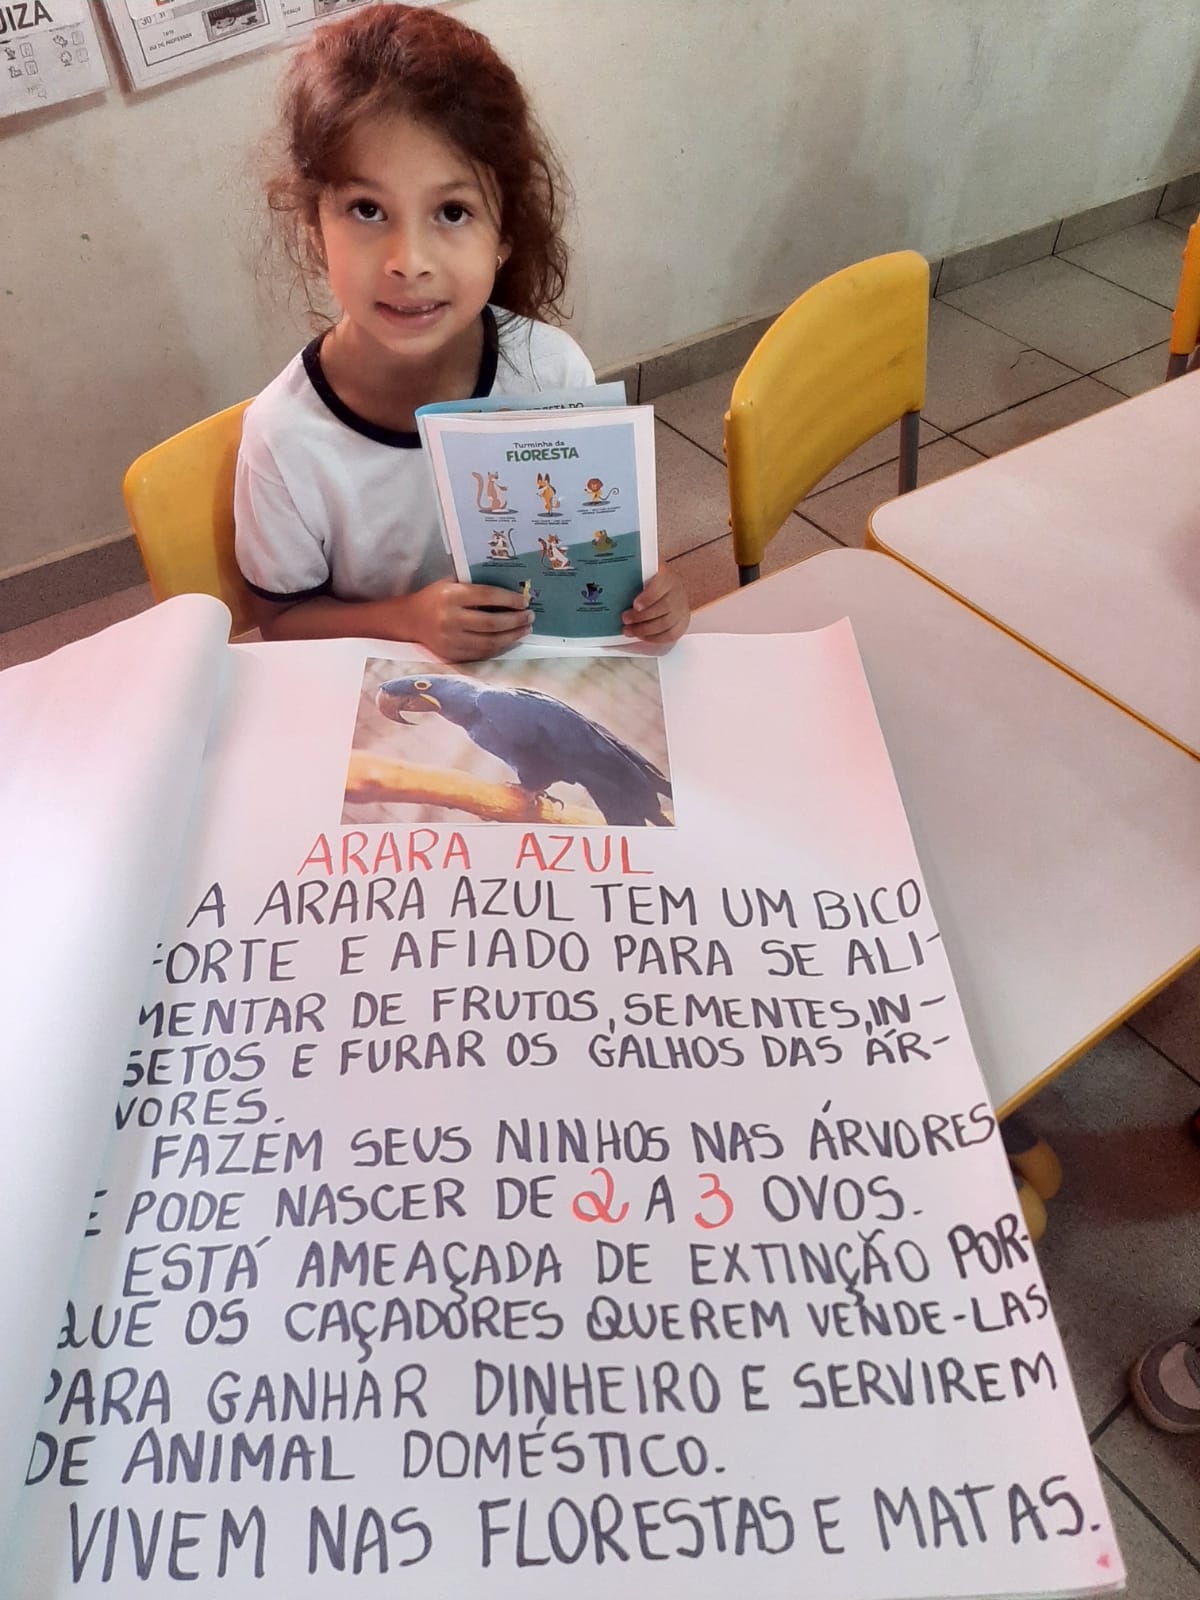 UIZA
30 31
DIA DO PROFESSOR
Turminha da
FLORESTA
ARARA AZUL
A ARARA AZUL TEM UM BICO
FORTE E AFIADO PARA SE ALI-
MENTAR DE FRUTOS, SEMENTES, IN-
SETOS E FURAR OS GALHOS DAS ÁR-
VORES.
FAZEM SEUS NINHOS NAS ÁRVORES
E PODE NASCER DE 2 A 3 OVOS.
ESTÁ AMEAÇADA DE EXTINÇÃO POR-
QUE OS CAÇADORES QUEREM VENDE-LAS
PARA GANHAR DINHEIRO E SERVIREM
DE ANIMAL DOMÉSTICO.
VIVEM NAS FLORESTAS E MATAS.